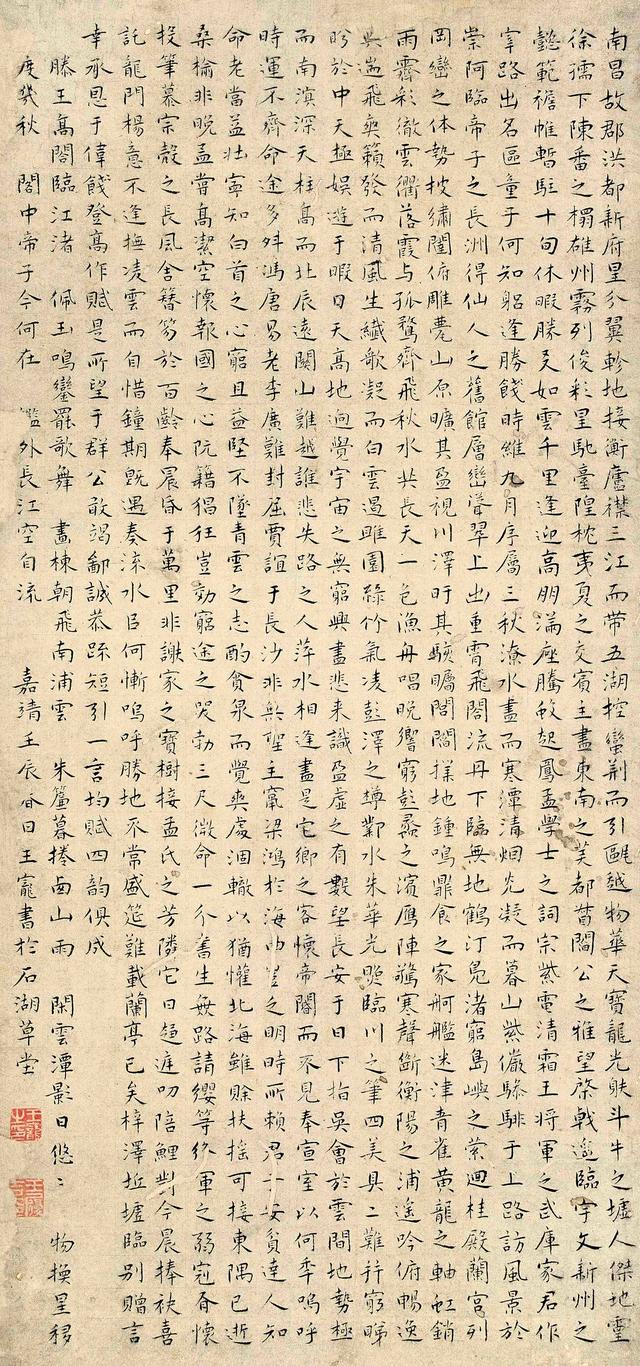 南昌故郡洪都新府星分翼軫地接衡廬襟三江而帶五湖控蠻荊而引甌越物華天寶龍光射斗牛之墟人傑地靈
徐孺下陳蕃之榻雄州霧列俊彩星馳臺隍枕夷夏之交賓主盡東南之美都督閻公之雅望棨戟遙臨宇文新州之
懿範襜帷暫駐十旬休暇勝友如雲千里逢迎高朋滿座騰蛟起鳳孟學士之詞宗紫電清霜王將軍之武庫家君作
宰路出名區童子何知躬逢勝餞時維九月序屬三秋潦水盡而寒潭清烟光凝而暮山紫儼驂騑于上路訪風景於
崇阿臨帝子之長洲得仙人之舊館層巒聳翠上出重霄飛閣流丹下臨無地鶴汀鳧渚窮島嶼之縈迴桂殿蘭宮列
岡巒之体勢披繡闥俯雕甍山原曠其盈視川澤盱其駭矚閭閻撲地鍾鳴鼎食之家舸艦迷津青雀黃龍之軸虹銷
雨霽彩徹雲衢落霞与孤鶩齊飛秋水共長天一色漁舟唱晚響窮彭蠡之濱鴈陣驚寒聲斷衡陽之浦遙吟俯暢逸
興遄飛爽籟發而清風生纖歌凝而白雲遏睢園綠竹氣凌彭澤之樽鄴水朱華光照臨川之筆四美具二難并窮睇
眄於中天極娛遊于暇日天高地迥覺宇宙之無窮興盡悲来識盈虛之有數望長安于日下指吳會於雲間地勢極
而南溟深天柱高而北辰遠關山難越誰悲失路之人萍水相逢盡是它鄉之客懷帝閽而不見奉宣室以何年嗚呼
時運不齊命途多舛馮唐易老李廣難封屈賈誼于長沙非無聖主竄梁鴻於海曲豈乏明時所賴君子安貧達人知
命老當益壯寧知白首之心窮且益堅不墜青雲之志酌貪泉而覺爽處涸轍以猶懽北海雖賒扶搖可接東隅已逝
桑榆非晚孟嘗高潔空懷報國之心阮籍猖狂豈効窮途之哭勃三尺微命一介書生無路請纓等終軍之弱冠有懷
投筆慕宗愨之長風舍簪笏於百齡奉晨昏于萬里非謝家之寶樹接孟氏之芳隣它日趨庭叨陪鯉對今晨捧袂喜
託龍門楊意不逢撫凌雲而自惜鐘期既遇奏流水曰何慚嗚呼勝地不常盛筵難載蘭亭已矣梓澤坵墟臨別贈言
幸承恩于偉餞登高作賦是所望于群公敢竭鄙誠恭疏短引一言均賦四韻俱成
滕王高閣臨江渚 佩玉鳴鑾罷歌舞 畫棟朝飛南浦雲 朱簾暮捲西山雨 閑雲潭影日悠〻 物換星移
度幾秋 閣中帝子今何在 檻外長江空自流 嘉靖壬辰春日王寵書於石湖草堂